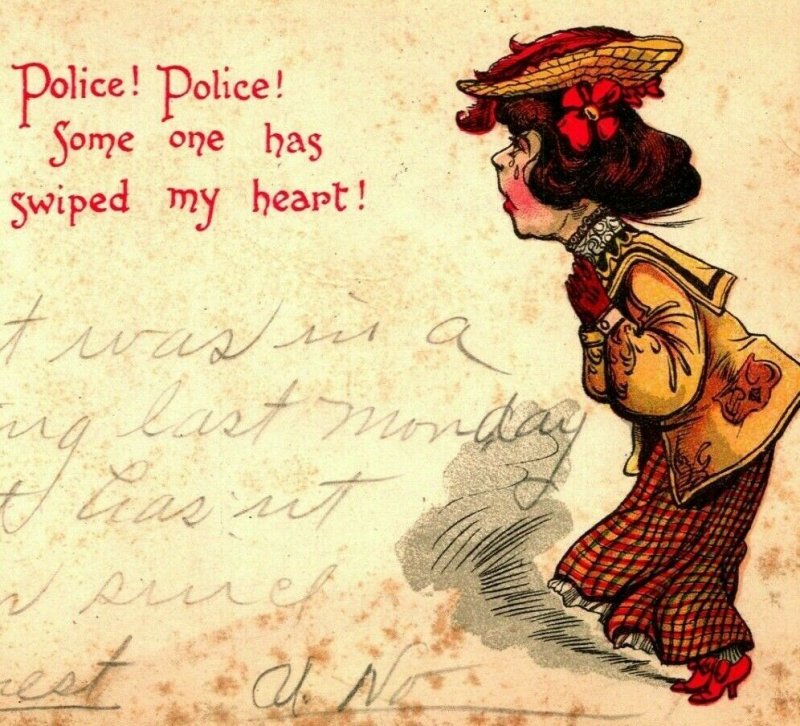 Police! Police!
Some one has
swiped my heart!
t was in a
ing last Monday
t has'nt
since
est U. No